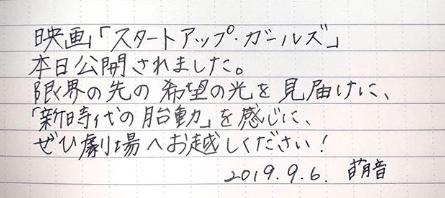 映画「スタートアップ・ガールズ」
本日公開されました。
限界の先の希望の光を見届けに、
「新時代の胎動」を感じに、
ぜひ劇場へお越しください!
2019.9.6. 萌音